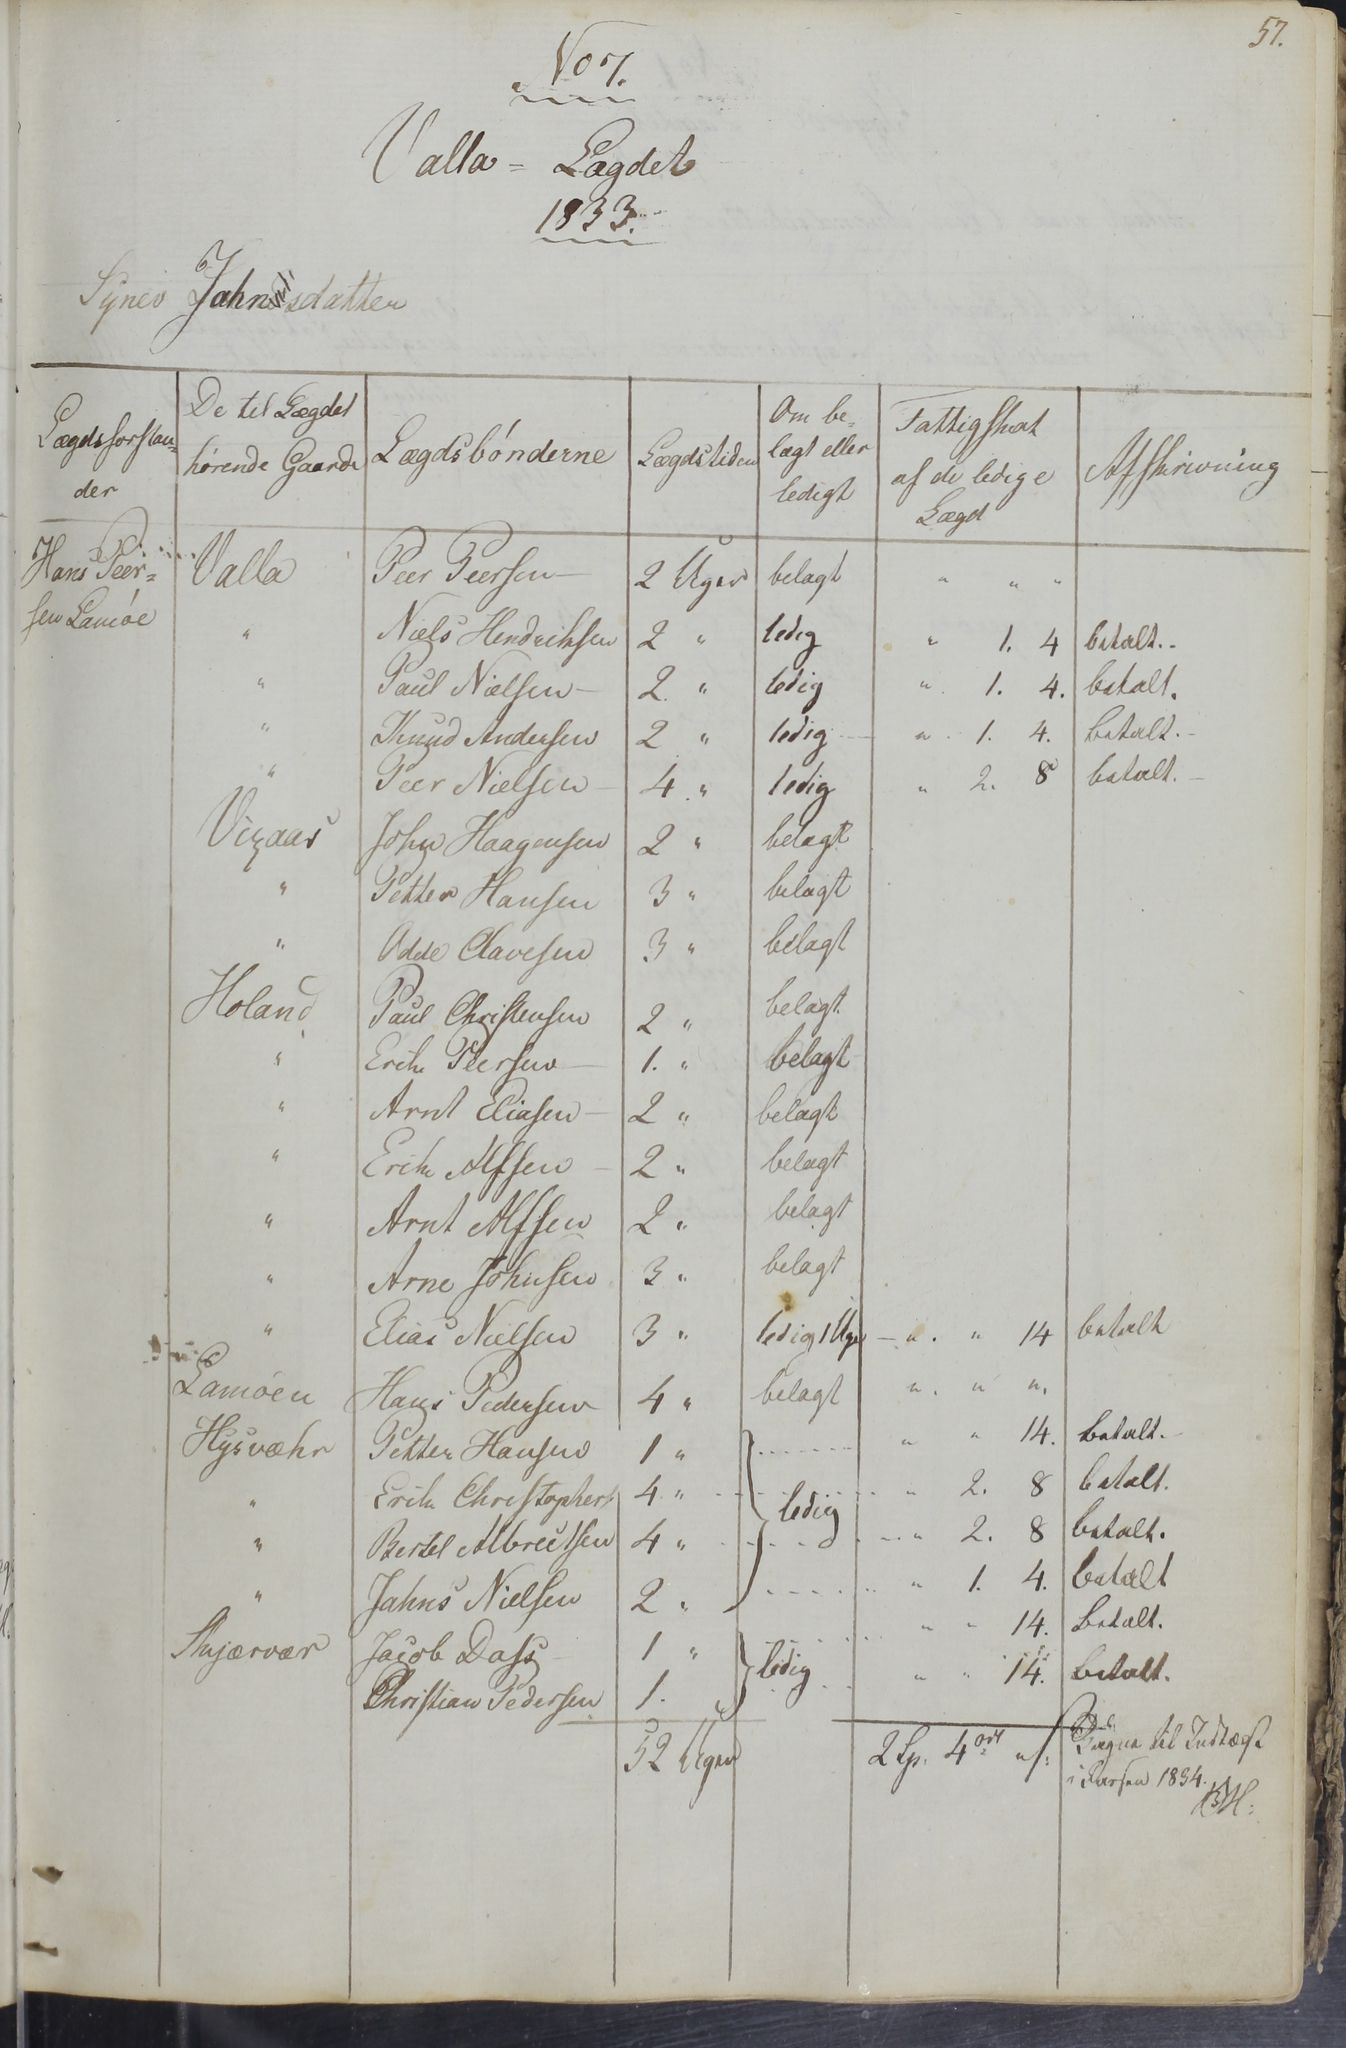 57.
No 7.
Valla = Lægdet
1833.
Synev Jahnsdatter
Lægdsforstan=
der
De til Lægdet
hørende Gaarde
Lægdsbønderne
Lægdstiden
Om be-
lagt eller
ledigt
Fattigskat
af de ledige
Lægd
Afskrivning
Hans Peer= Valla Peer Peersen - 2 Uger belagt " " "
sen Lamøe
" Niels Hendriksen 2 " ledig " 1. 4 betalt.
" Paul Nielsen - 2. " ledig " 1. 4. betalt.
" Knud Andersen 2 " ledig " 1. 4. betalt.
" Peer Nielsen - 4. " ledig " 2. 8 betalt.
Vigaas John Haagensen 2 " belagt
" Petter Hansen 3 " belagt
" Odde Clavesen 3 " belagt
Holand Paul Christensen 2 " belagt
" Erik Peersen - 1. " belagt
" Arnt Eliasen - 2 " belagt
" Erik Alfsen - 2 " belagt
" Arnt Alfsen 2 " belagt
" Arne Johnsen 3 " belagt
" Elias Nielsen 3 " ledig 1 Uge - " " 14 betalt
Lamøen Hans Pedersen 4 " belagt " " "
Hysvæhr Petter Hansen 1 " " " 14. betalt.
" Erik Christophers 4 " ledig " 2. 8 betalt.
" Bertel Albreitsen 4 " " 2. 8 betalt.
" Jahns Nielsen 2 " " 1. 4. betalt
Skjærvær Jacob Dass 1 " ledig " " 14. betalt.
Christian Pedersen 1. " " " 14. betalt.
52 Uger 2 Sp. 4 ort " s: til Indtægt
i 1834.